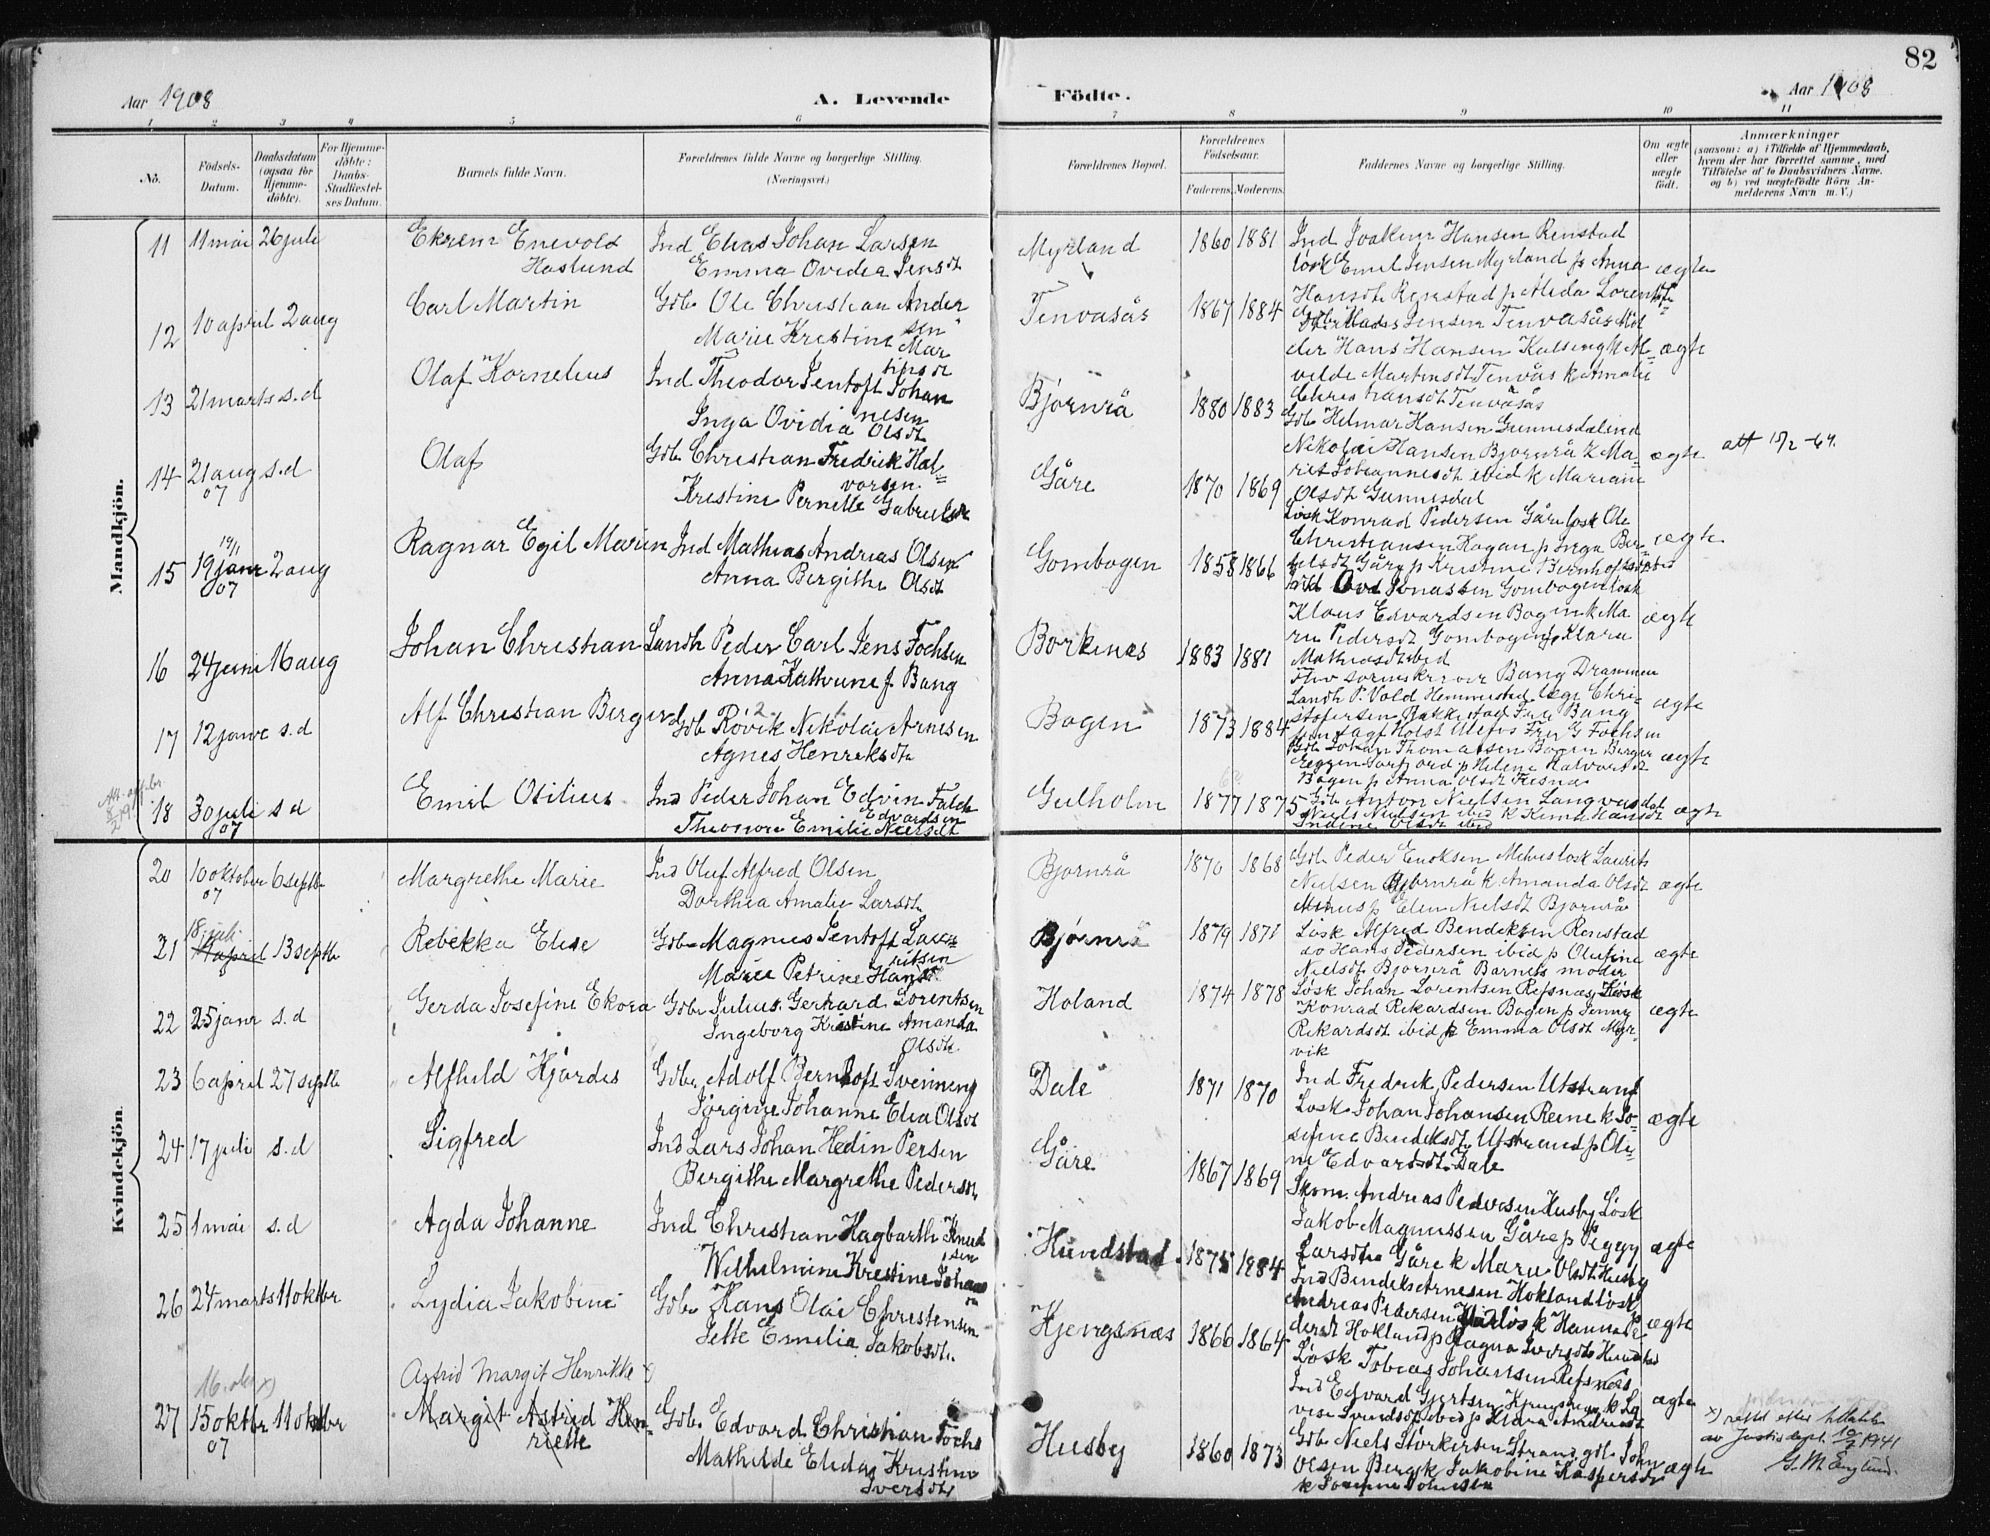 82
Aar 1908
A. Levende Födte.
Aar 1908
1 2 3 4 5 6 7 8 9 10 11
No.
Födsels-Datum.
Daabsdatum (ogsaa för Hjemme-döbte).
For Hjemme-döbte: Daabs-Stadfæstel-ses Datum.
Barnets fulde Navn.
Forældrenes fulde Navne og borgerlige Stilling. (Næringsvei.)
Forældrenes Bopæl.
Forældrenes Födselsaar.
Faderens. Moderens.
Faddernes Navne og borgerlige Stilling.
Om ægte eller uægte födt.
Anmærkninger
(saasom: a) i Tilfælde af Hjemmedaab, hvem der har forrettet samme, med Tilföielse af to Daabsvidners Navne. og b) ved uægtefödte Börn An-melderens Navn m. V.)
Mandkjön.
11 11 mai 26 juli Ekrem Enevold Haslund
Ind Elias Johan Larsen
Emma Ovidia Jensdt
Myrland 1860 1881
Ind Joakim Hansen Renstad
løsk Emil Jensen Myrland p Anna
Hansdt Renstad p Alida Lorentsdt
ægte
12 10 april 2 aug Carl Martin
Gdb Ole Christian Andersen
Marie Kristine Martinsdt
Tenvasås 1867 1884
Jensen Tenvasås
der Hans Hansen
Martinsdt Tenvås k Amalie
Christiansdt Tenvåsås
ægte
13 21 marts s.d Olaf Kornelius
Ind Theodor Jentoft Johannesen
Inga Ovidia Olsdt
Bjørnrå 1880 1883
Gdb Helmer Hansen Gunnesdal ind
Nikolai Hansen Bjørnrå k Ma-
ret Johannesdt ibid k Mariane
Olsdt Gunnesdal
ægte
att 15/2 -64.
14 21 aug 07 s.d Olaf
Gdb Christian Fredrik Halvorsen.
Kristine Pernelle Gabrielsdt
Gåre 1870 1869
Løsk Konrad Pedersen Gåre løsk Ole
Christiansen Hagan p Inga Ber-
Gåre p Kristine
ægte
15 19 janr 07 19/1 2 aug Ragnar Egil Marin
Ind Mathias Andreas Olsen
Anna Bergithe Olsdt
Gombogen 1858 1866
Ind Ovd Jonassen Gombogen løsk
Klaus Edvardsen Bogen k Ma
rie Pedersdt Gombogen p Klara
Mathiasdt ibid
ægte
16 24 juni 16 aug Johan Christian
Landh Peder Carl Jens Fochsen
Anna Kathrine f Bang
Borkenes 1883 1881
Bang Drammen
Landh P. Vold Hemmestad læge Chri-
stofersen Frue Bang
Holst Ulefos Fru G Fochsen
ægte
17 12 janr s.d Alf Christian Berger
Gdb Røvik Nikolai Arnesen
Agnes Henriksdt
Bogen 1873 1884
Gdb Johan Thomassen Bogen Berger
p Helene Halvorsdt
Bogen p Anna Olsdt
ægte
18 30 juli 07 s d Emil Otilius
Ind Peder Johan Edvin Falck Edvardsen
Theonore Emilie Nielsdt
Gulholm 1877 1875
Gdb Anton Nielsen Langvasdal
Niels Nielsen ibid k Hansdt
Olsdt ibid
ægte
Kvindekjön.
20 10 oktober 07 6 septb Margrethe Marie
Ind Oluf Alfred Olsen
Dorthea Amalie Larsdt
Bjørnrå 1870 1868
Gdb Peder Enoksen løsk Laurits
Nielsen Bjørnrå k. Amanda Olsdt
p Elen Nielsdt Bjørnrå
ægte
21 18 juli 11 april 13 septb Rebekka Elise
Gdb Magnus Jentoft Lauritsen
Marie Petrine Hansdt
Bjørnrå 1879 1871
Løsk Alfred Bendiksen Renstad
do Hans Pedersen ibid p Olufine
Nielsdt Bjørnrå Barnets moder
ægte
22 25 janr s.d Gerda Josefine Ekora
Gdb Julius Gerhard Lorentsen
Ingeborg Kristine Amanda Olsdt.
Holand 1874 1878
Løsk Johan Lorentsen Refsnæs, Løsk
Konrad Rikardsen Bogen p Jenny
Rikardsdt ibid p Emma Olsdt Myr-
vik
ægte
23 6 april 27 septb Alfhild Hjørdis
Gdb. Adolf Bernhoft Svenning
Jørgine Johanne Elea Olsdt
Dale 1871 1870
Ind Fredrik Pedersen Utstrand
Løsk Johan Johansen Reine k Jo-
sefine Bendiksdt Utstrand p Oli-
ne Edvardsdt Dale
ægte
24 17 juli s.d Sigfred
Ind Lars Johan Hedin Persen
Bergithe Margrethe Pedersdt
Gåre 1867 1869
Skom. Andreas Pedersen Husby Løsk
Jakob Magnussen Gåre p Peggy
Larsdt Gåre k Marie Olsdt Husby
ægte
25 1 mai s.d Agda Johanne
Ind Christian Hagbarth Knudsen
Wilhelmine Kristine Johans
Hundstad 1875 1884
Ind Bendiks Arnesen Hokland løsk
Andreas Pedersen k Hanna
dersdt Hokland p Ragna Iversdt Hundstad
ægte
26 24 marts 11 oktbr Lydia Jakobine
Gdb Hans Olai Christensen
Jette Emilie Jakobsdt.
Kjengsnæs 1866 1864
Løsk Tobias Johansen Refsnæs
Ind Edvard Gjertsen Kjengsnes k Lo
vise Svendsdt ibid p Klara Andreasdt
ægte
27 15 oktbr 07 16. okt x) 11 oktbr
Astrid Margit Henrikke x
Margit Astrid Hen-
riette
Gdb. Edvard Christian Fochs
Mathilde Elida Kristine
Iversdt
Husby 1860 1873
Gdb Niels Størkersen Strand gdb John
Olsen Berg k Jakobine Kaspersdt
ægte
x) rettet efter tillatelse
av Justisdept. 10/7 1941
G. M. Englund.